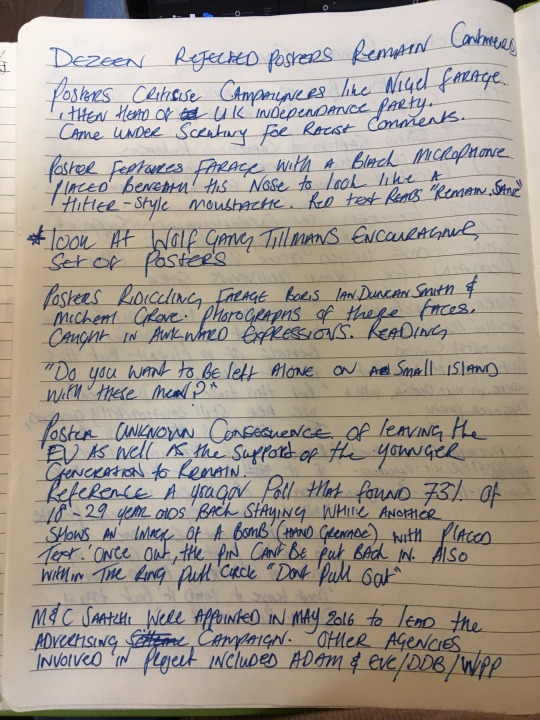 DEZEEN REJECTED POSTERS REMAIN Continued
POSTERS CRITISISE CAMPAIGNERS like NIGEL FARAGE.
, THEN HEAD OF UK INDEPENDANCE PARTY.
CAME UNDER SCRUTINY for RACIST COMMENTS.
POSTER FEATURES FARAGE WITH A BLACK MICROPHONE
PLACED BENEATH HIS NOSE to look like A
HITLER-STYLE MOUSTACHE. RED TEXT READS "REMAIN, SANE"
* look AT WOLFGANG TILLMANS ENCOURAGING
SET OF POSTERS
POSTERS RIDICULING FARAGE BORIS IAN DUNCAN SMITH &
MICHEAL GROVE. PHOTOGRAPHS of there FACES.
CAUGHT IN AWKWARD EXPRESSIONS. READING
"Do you WANT to BE left ALONE ON A SMALL ISLAND
WITH these MEN?"
POSTER UNKNOWN CONSEQUENCE of leaving the
EU AS WELL AS the SUPPORT of the YOUNGER
GENERATION to REMAIN
REFERENCE A YOUGOV Poll that found 73% of
18-29 YEAR OLDS BACK STAYING WHILE ANOTHER
SHOWS AN IMAGE OF A BOMB (HAND GRENADE) WITH PLACED
TEXT. 'ONCE OUT, the PIN CANT BE put BACK IN. Also
WITHIN THE RING Pull CIRCLE "DONT Pull Out"
M&C SAATCHI WERE APPOINTED IN MAY 2016 to LEAD the
ADVERTISING CAMPAIGN. OTHER AGENCIES
INVOLVED IN PROJECT INCLUDED ADAM & EVE/DDB/WPP